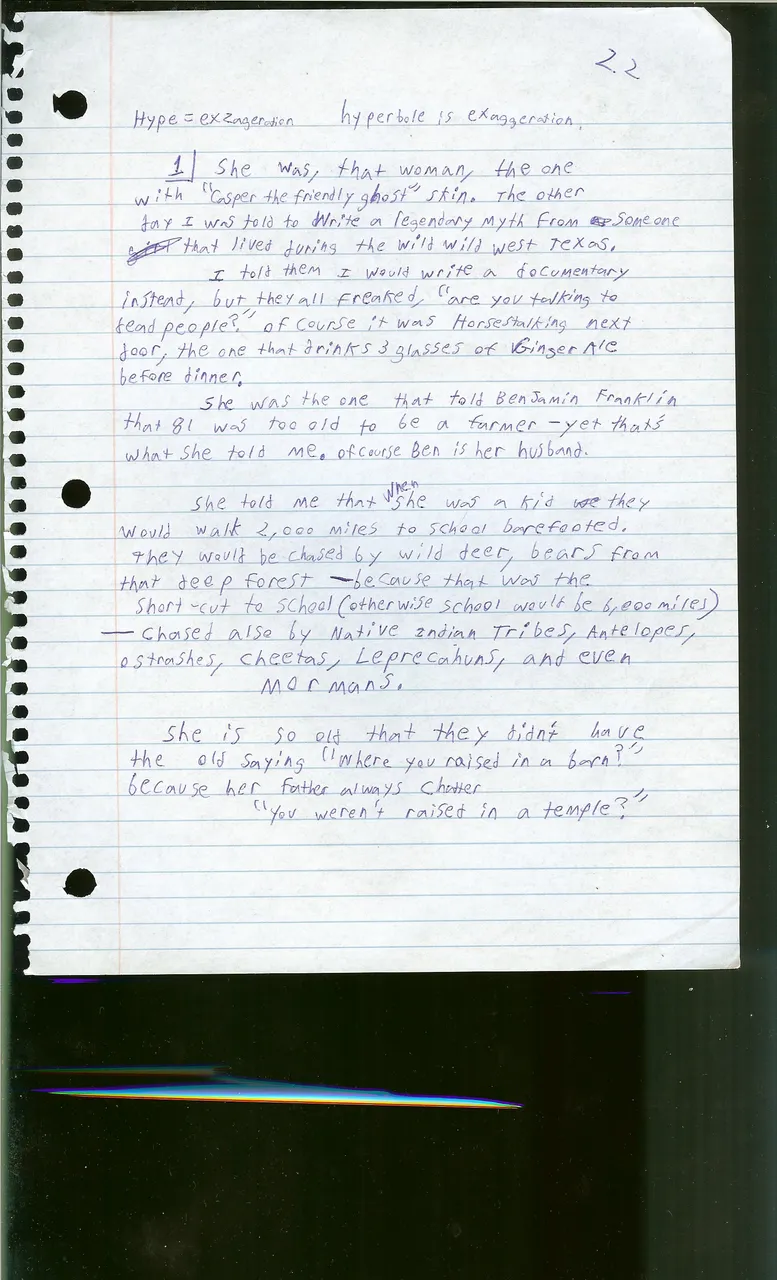 2.2
Hype = exzageration hyperbole is exaggeration.
1 She was, that woman, the one
with "Casper the friendly ghost" skin. The other
day I was told to write a legendary myth from someone
that lived during the wild wild west Texas.
I told them I would write a documentary
instead, but they all freaked, "are you talking to
dead people?" of course it was Horsestalking next
door, the one that drinks 3 glasses of Ginger Ale
before dinner.
She was the one that told Benjamin Franklin
that 81 was too old to be a farmer - yet that's
what she told me. of course Ben is her husband.
She told me that when she was a kid they
would walk 2,000 miles to school barefooted.
They would be chased by wild deer, bears from
that deep forest — because that was the
short-cut to school (otherwise school would be 6,000 miles)
— Chased also by Native Indian Tribes, Antelopes,
ostrashes, cheetas, Leprecahuns, and even
Mormans.
She is so old that they didn't have
the old saying "Where you raised in a barn?"
because her father always Chatter
"You weren't raised in a temple?"